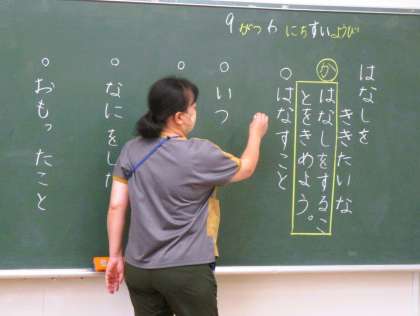 9がつ7にちすいようび
はなしを
ききたいな
か
はなしをするこ
とをきめよう。
○はなすこと
○いつ
○
○なにをした
○おもったこと